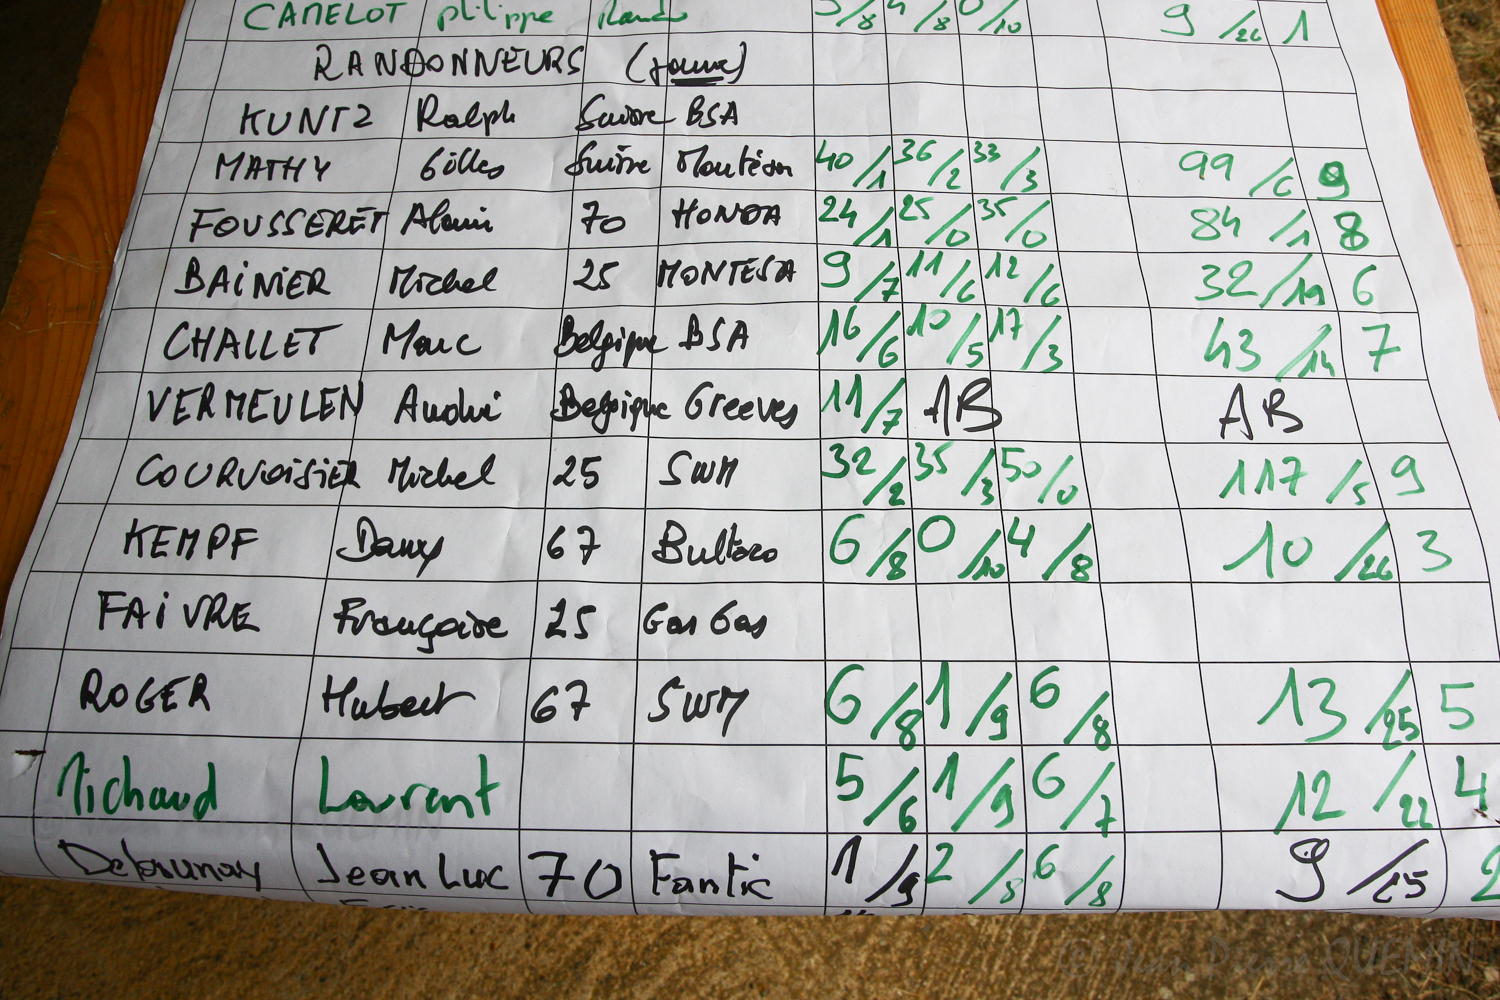 CAMELOT philippe 5/8 4/8 0/10 9/26 1
RANDONNEURS (jaune)
KUNTZ Ralph Suisse BSA
MATHY Gilles Suisse Montesa 40/1 36/2 33/3 99/6 9
FOUSSERET Alain 70 HONDA 24/1 25/0 35/0 84/1 8
BAINIER Michel 25 MONTESA 9/7 11/6 12/6 32/19 6
CHALLET Marc Belgique BSA 16/6 10/5 17/3 43/14 7
VERMEULEN André Belgique Greeves 11/7 AB AB
COURVOISIER Michel 25 SWM 32/2 35/3 50/0 117/5 9
KEMPF Dany 67 Bultaco 6/8 0/10 4/8 10/26 3
FAIVRE Françoise 25 Gas Gas
ROGER Hubert 67 SWM 6/8 1/9 6/8 13/25 5
Michaud Laurent 5/6 1/9 6/7 12/22 4
Delaunay Jean Luc 70 Fantic 1/9 2/8 6/8 9/25 2
QUEMIN